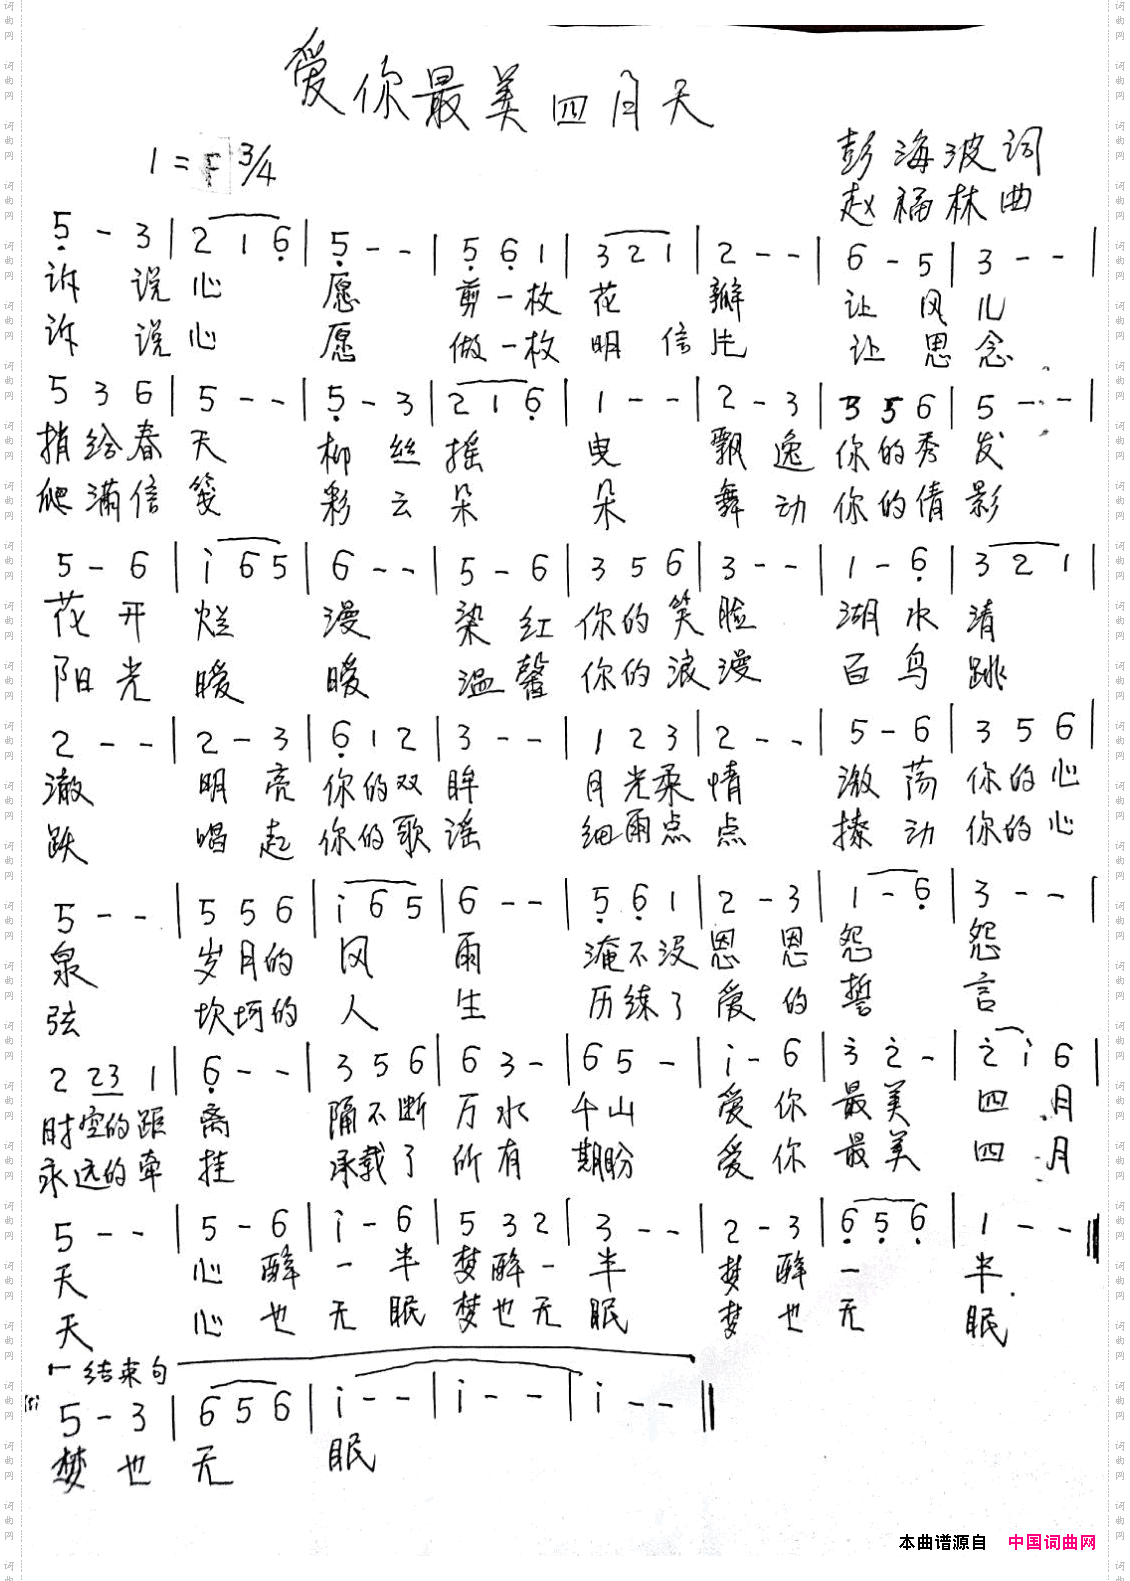 爱你最美四月天
1=F 3/4
彭海波词
赵福林曲
5̣ - 3 | 2 1 6̣ | 5̣ - - | 5̣ 6̣ 1 | 3 2 1 | 2 - - | 6 - 5 | 3 - - |
诉 说 心 愿 剪一枚 花 瓣 让 风 儿
诉 说 心 愿 做一枚 明 信 片 让 思 念
5 3 6 | 5 - - | 5̣ - 3 | 2 1 6̣ | 1 - - | 2 - 3 | 3 5 6 | 5 - - |
捎给春 天 柳 丝 摇 曳 飘 逸 你的秀 发
爬满信 笺 彩 云 朵 朵 舞 动 你的倩 影
5 - 6 | i 6 5 | 6 - - | 5 - 6 | 3 5 6 | 3 - - | 1 - 6̣ | 3 2 1 |
花 开 烂 漫 染 红 你的笑 脸 湖 水 清
阳 光 暖 暖 温 馨 你的浪 漫 百 鸟 跳
2 - - | 2 - 3 | 6̣ 1 2 | 3 - - | 1 2 3 | 2 - - | 5 - 6 | 3 5 6 |
澈 明 亮 你的双 眸 月光柔 情 激 荡 你的心
跃 唱 起 你的歌 谣 细雨点 点 撩 动 你的心
5 - - | 5 5 6 | i 6 5 | 6 - - | 5̣ 6̣ 1 | 2 - 3 | 1 - 6̣ | 3 - - |
泉 岁月的 风 雨 淹不没 恩 恩 怨 怨
弦 坎坷的 人 生 历练了 爱 的 誓 言
2 23 1 | 6̣ - - | 3 5 6 | 6 3 - | 6 5 - | i - 6 | 3̇ 2̇ - | 2̇ i 6 |
时空的距 离 隔不断 万 水 千山 爱 你 最 美 四 月
永远的牵 挂 承载了 所 有 期盼 爱 你 最 美 四 月
5 - - | 5 - 6 | i - 6 | 5 3 2 | 3 - - | 2 - 3 | 6̣ 5̣ 6̣ | 1 - - ‖
天 心 醉 一 半 梦醉一 半 梦 醉 一 半
天 心 也 无 眠 梦也无 眠 梦 也 无 眠
结束句
5 - 3 | 6 5 6 | i - - | i - - | i - - ‖
梦 也 无 眠
本曲谱源自 中国词曲网